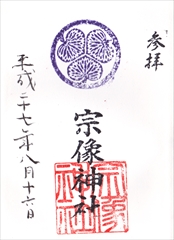 参拝
宗像神社
平成二十七年八月十六日